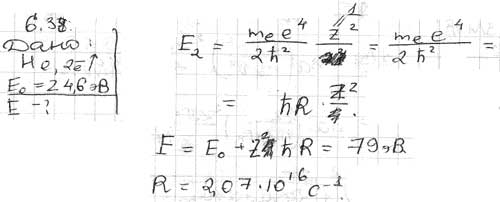 6.38.
Дано:
He, 2e↑
E₀ = 24,6 эВ
E - ?
E₂ = mₑe⁴/2ħ² z²/1 = mₑe⁴/2ħ² =
= ħR · z²/1.
E = E₀ + z²ħR = 79 эВ
R = 2,07·10¹⁶ с⁻¹